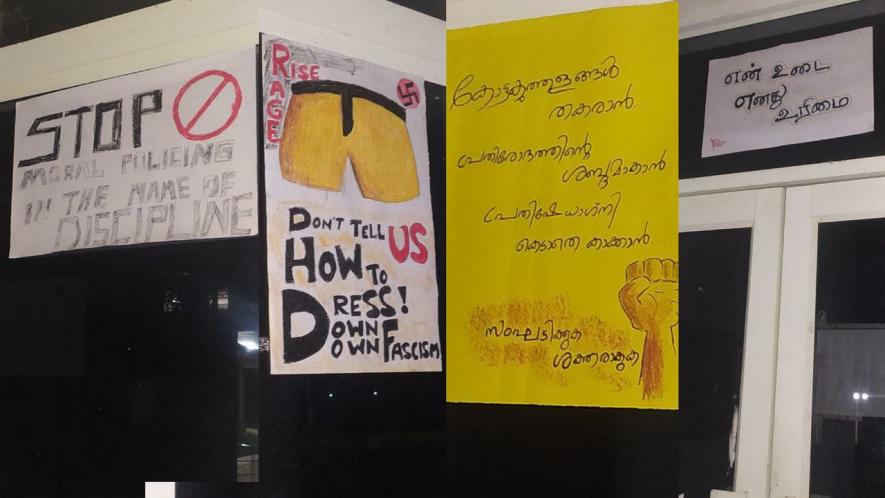 STOP
MORAL POLICING
IN THE NAME OF
DISCIPLINE
RISE
RAGE
DON'T TELL US
HOW TO
DRESS!
DOWN
DOWN FASCISM
കോട്ടകൊത്തളങ്ങൾ
തകരാൻ...
പ്രതിരോധത്തിന്റെ
ശബ്ദമാകാൻ
പ്രതിഷേധാഗ്നി
കെടാതെ കാക്കാൻ...
സംഘടിക്കുക
ശക്തരാകുക
என் உடை
எனது
உரிமை